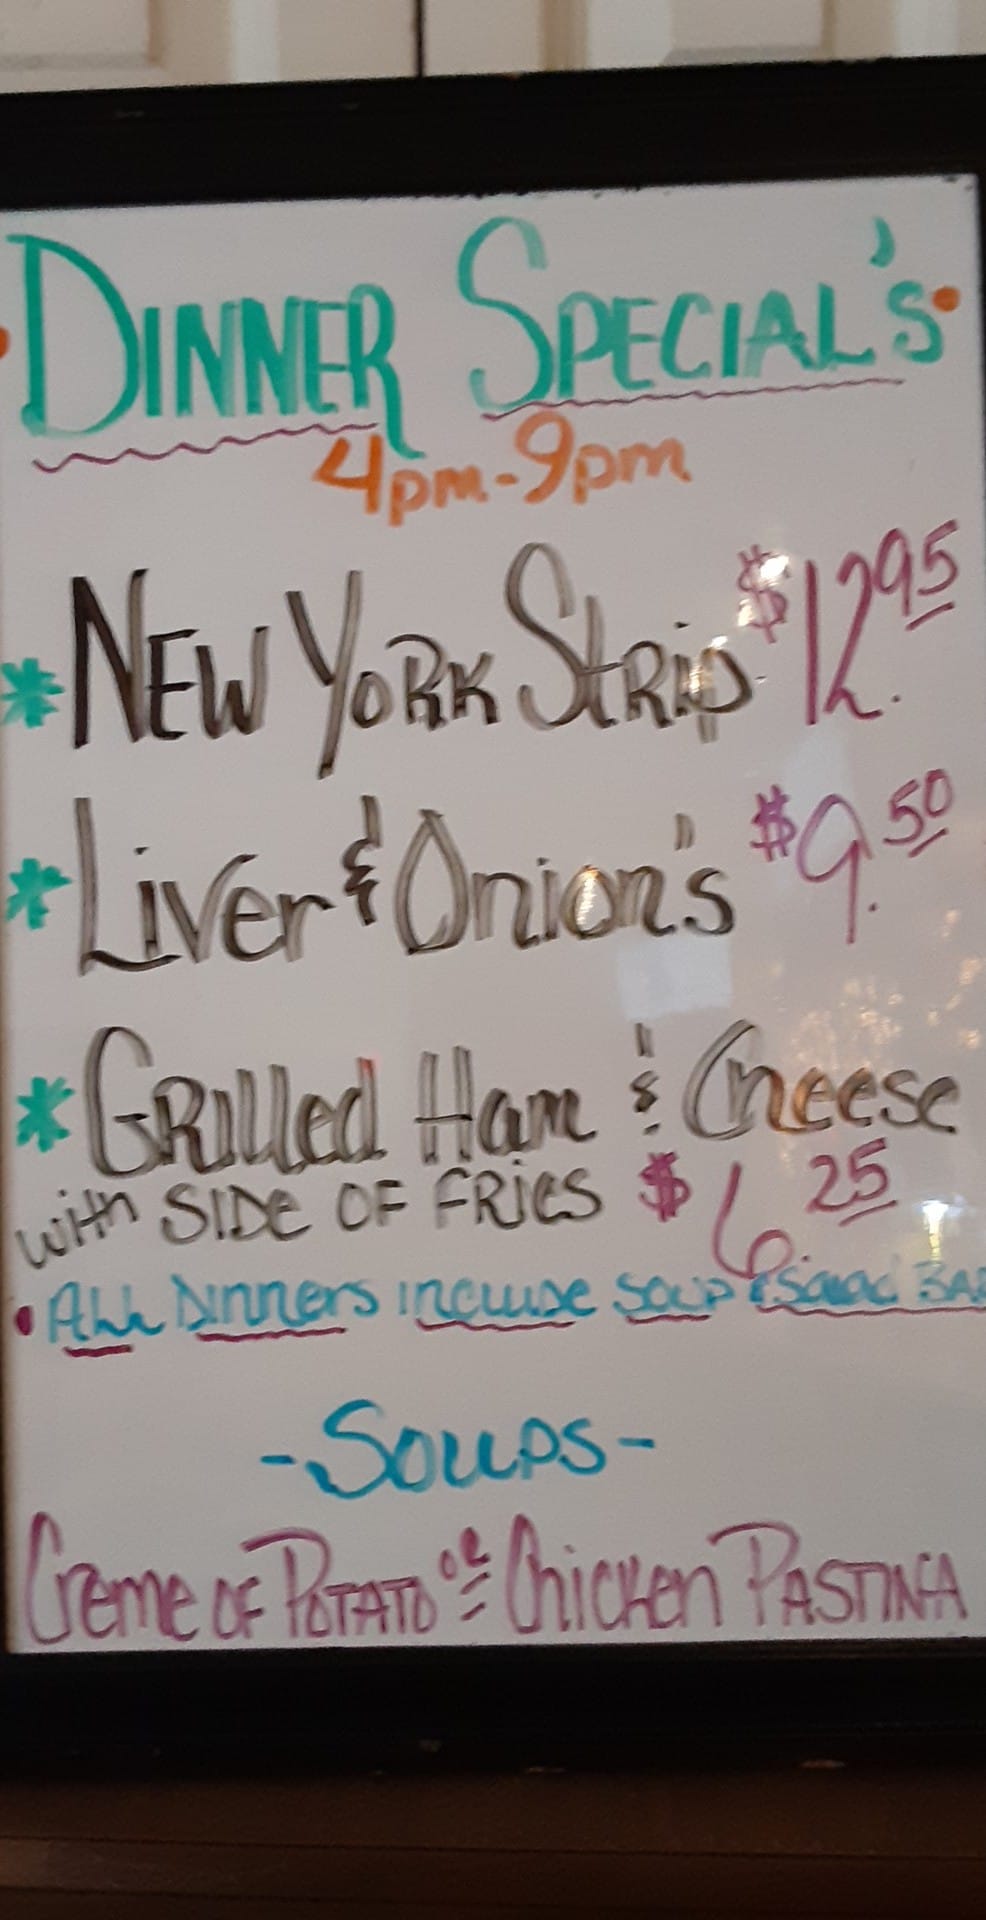 • DINNER SPECIAL'S •
4pm-9pm
* NEW YORK StRip $12.95
* Liver & Onion's $9.50
* GRilled Ham & Cheese
with SIDe OF FRies $6.25
• ALL DINNeRS INCLUDE SOUP & Salad BAR
-Soups-
Creme OF POTATO OR Chicken PASTINA